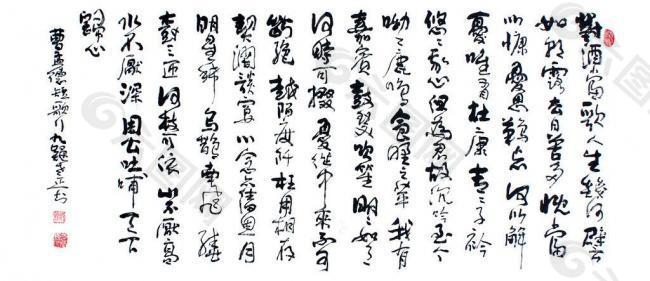 對酒當歌人生幾何譬
如朝露去日苦多慨當
以慷憂思難忘何以解
憂唯有杜康青青子衿
悠悠我心但為君故沉吟至今
呦呦鹿鳴食野之苹我有
嘉賓鼓瑟吹笙明明如月
何時可掇憂從中來不可
斷絕越陌度阡枉用相存
契闊談讌心念舊恩月
明星稀烏鵲南飛繞
樹三匝何枝可依山不厭高
水不厭深周公吐哺天下
歸心
曹孟德短歌行